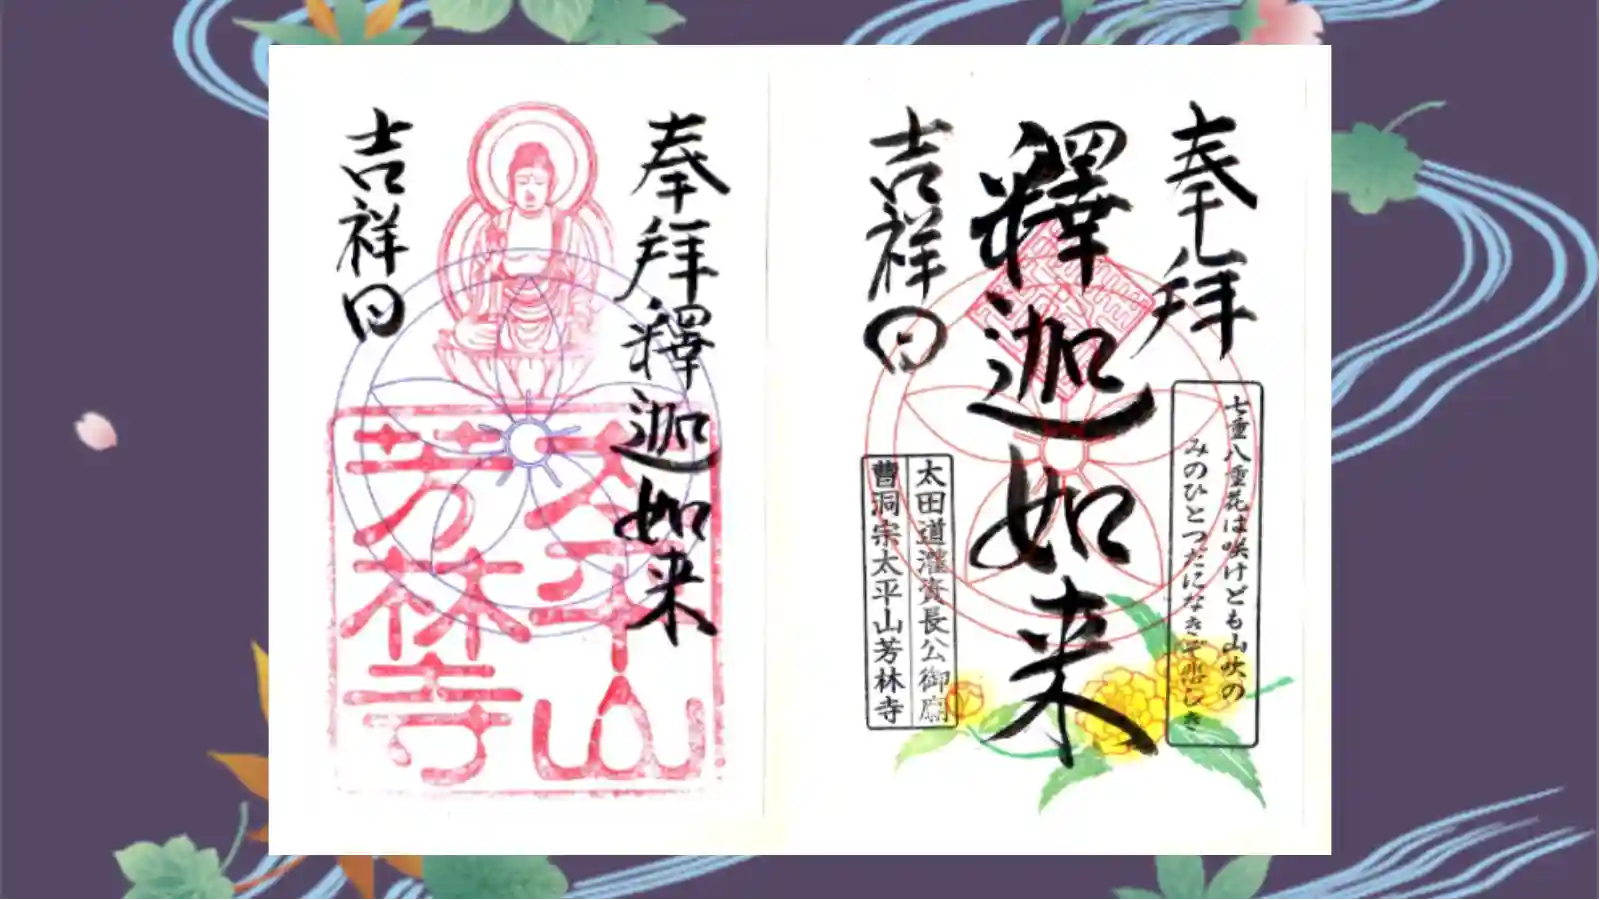 奉拝
釋迦如来
吉祥日
七重八重花は咲けども山吹の
みのひとつだになきぞ悲しき
太田道灌資長公御廟
曹洞宗太平山芳林寺
奉拝釋迦如来
吉祥日
太平山
芳林寺